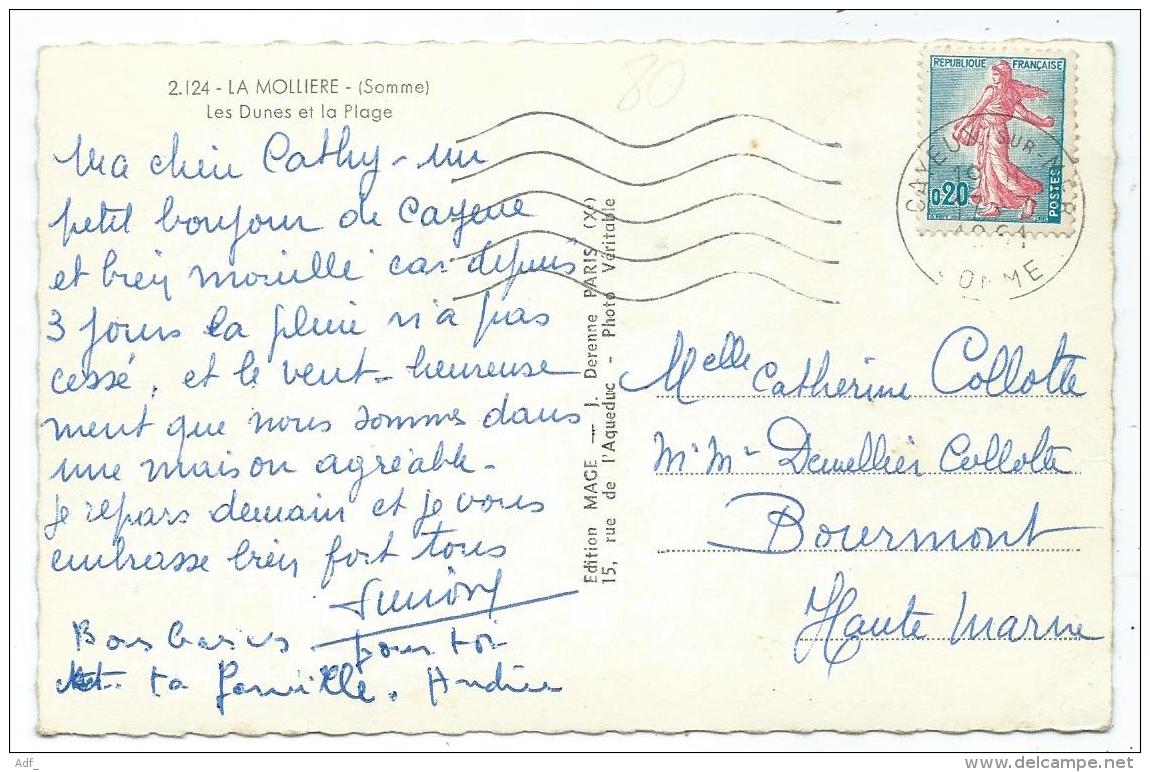 2.124 - LA MOLLIERE - (Somme)
Les Dunes et la Plage
80
REPUBLIQUE FRANÇAISE
0,20
POSTES
CAYEUX SUR-MER
1961
SOMME
Ma chère Cathy - un
petit bonjour de Cayeue
et bien mouillé car depuis
3 jours la pluie n'a pas
cessé, et le vent - heureuse
ment que nous sommes dans
une maison agréable -
Je repars demain et je vous
embrasse bien fort tous
Bons baisers pour toi
et ta famille. Andrée
Edition MAGE — J. Derenne PARIS (Xe)
15, rue de l'Aqueduc - Photo Véritable
Melle Catherine Collotte
Mr Mr Collotte
Bourmont
Haute Marne
Adf_
www.delcampe.net